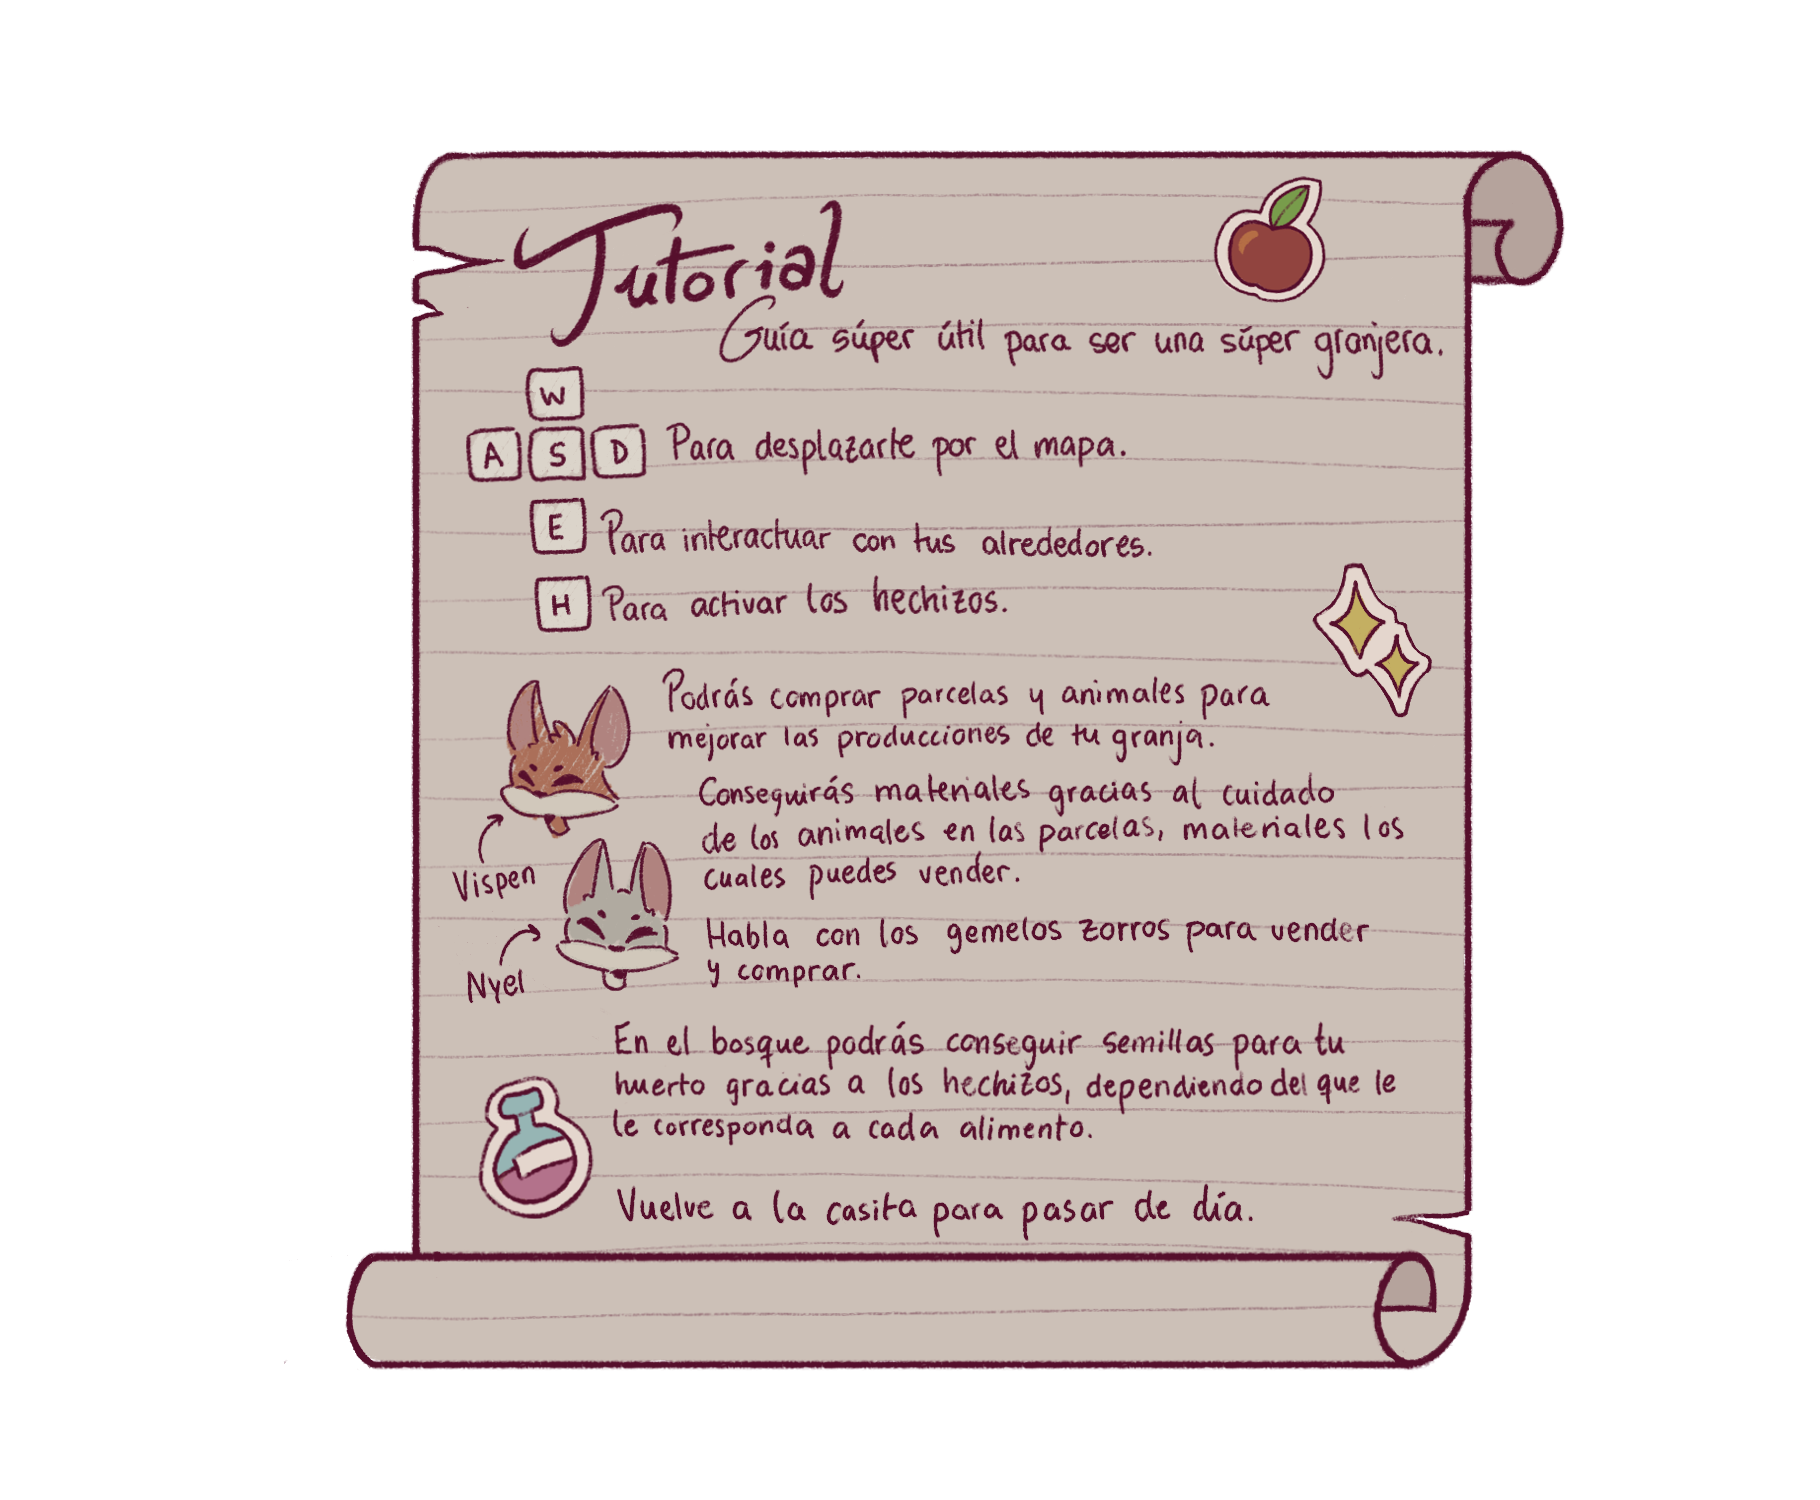 Tutorial
Guía súper útil para ser una súper granjera.
W
A S D Para desplazarte por el mapa.
E Para interactuar con tus alrededores.
H Para activar los hechizos.
Podrás comprar parcelas y animales para
mejorar las producciones de tu granja.
Conseguirás materiales gracias al cuidado
de los animales en las parcelas, materiales los
cuales puedes vender.
Vispen
Habla con los gemelos zorros para vender
y comprar.
Nyel
En el bosque podrás conseguir semillas para tu
huerto gracias a los hechizos, dependiendo del que le
le corresponda a cada alimento.
Vuelve a la casita para pasar de día.